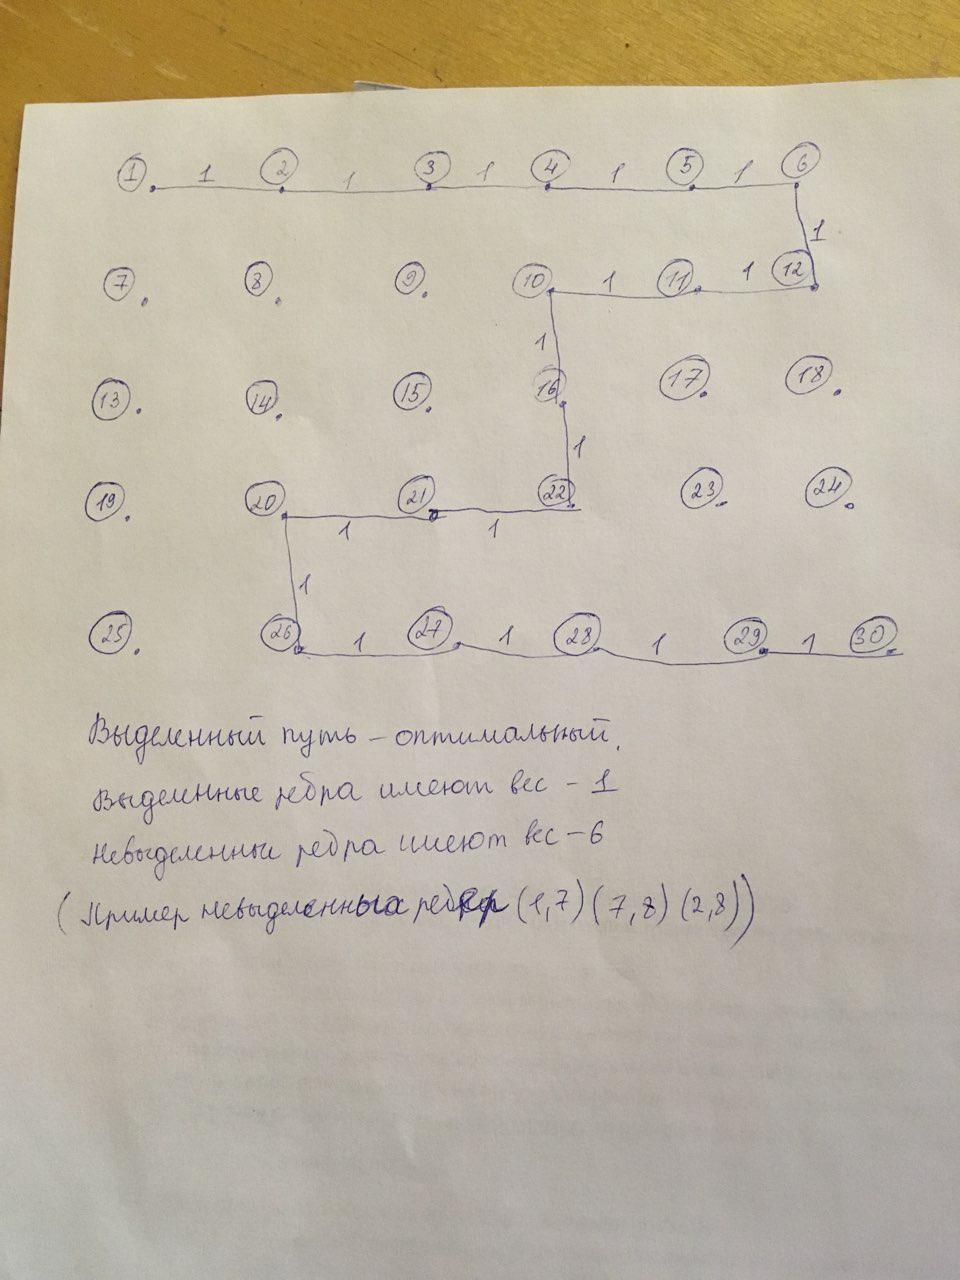 1 1 2 1 3 1 4 1 5 1 6
1
7 8 9 10 1 11 1 12
1
13 14 15 16 17 18
1
19 20 21 22 23 24
1 1
1
25 26 1 27 1 28 1 29 1 30
Выделенный путь – оптимальный.
Выделенные ребра имеют вес – 1
Невыделенные ребра имеют вес – 6
(Пример невыделенных ребер (1,7) (7,8) (2,8))